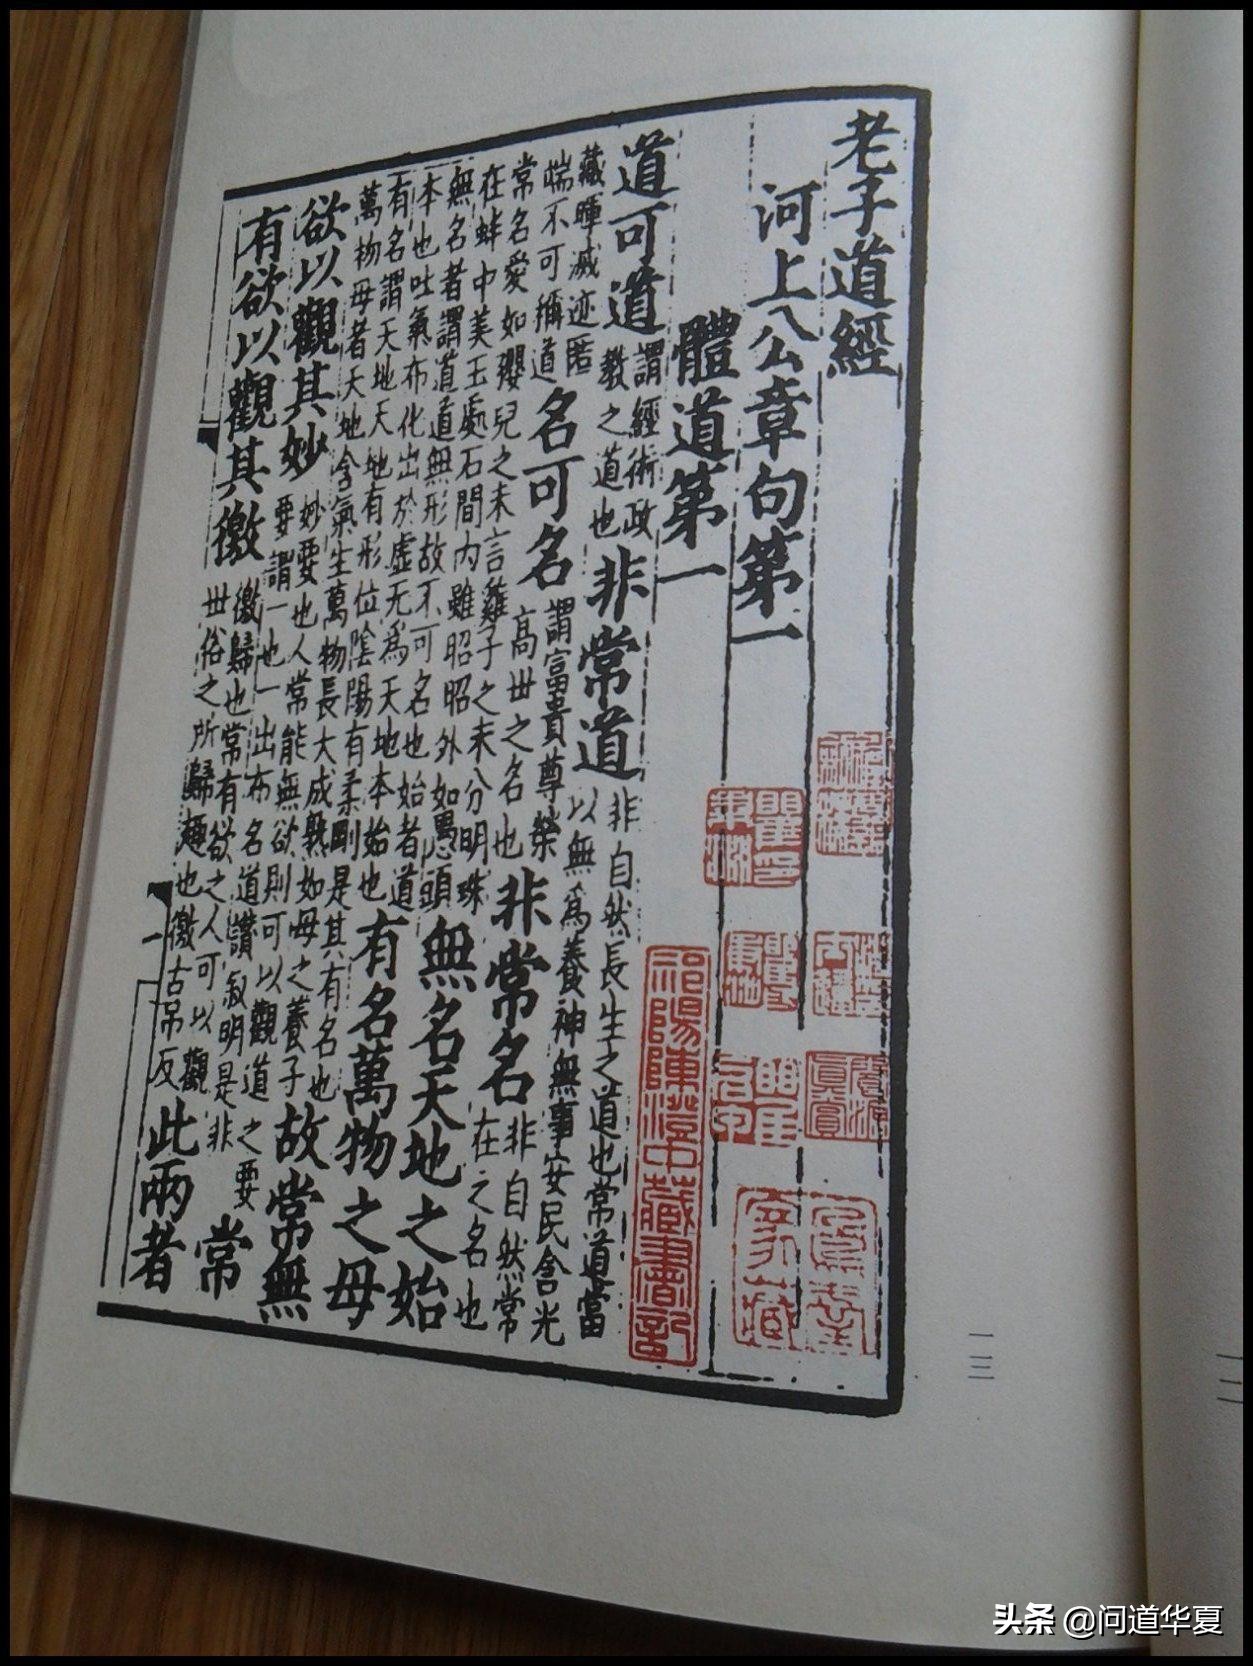 老子道經
河上公章句第一
體道第一
道可道謂經術政教之道也非常道非自然長生之道也常道當以無爲養神無事安民含光
藏暉滅迹匿端不可稱道名可名謂富貴尊榮高世之名也非常名非自然常在之名也
常名愛如嬰兒之未言雞子之未分明珠在蚌中美玉處石間内雖昭昭外如愚頭無名天地之始
無名者謂道道無形故不可名也始者道本也吐氣布化出於虛无爲天地本始也有名萬物之母
有名謂天地天地有形位陰陽有柔剛是其有名也萬物母者天地含氣生萬物長大成熟如母之養子故常無
欲以觀其妙妙要也人常能無欲則可以觀道之要要謂一也一出布名道讚敘明是非常
有欲以觀其徼徼歸也常有欲之人可以觀世俗之所歸趣也徼古吊反此兩者
一
祁陽陳澄中藏書記
一三
一二
头条 @问道华夏